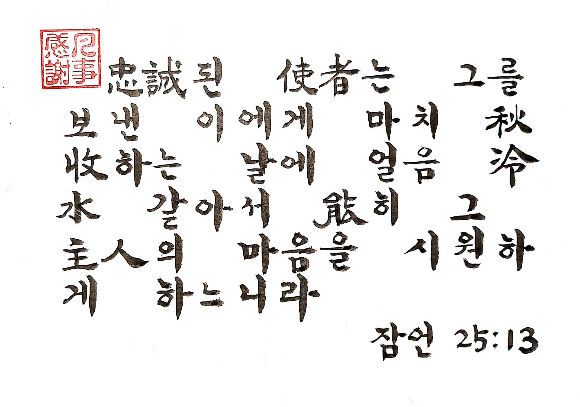 凡事感謝
忠誠된 使者는 그를
보낸 이에게 마치 秋
收하는 날에 얼음 冷
水 같아서 能히 그
主人의 마음을 시원하
게 하느니라
잠언 25:13